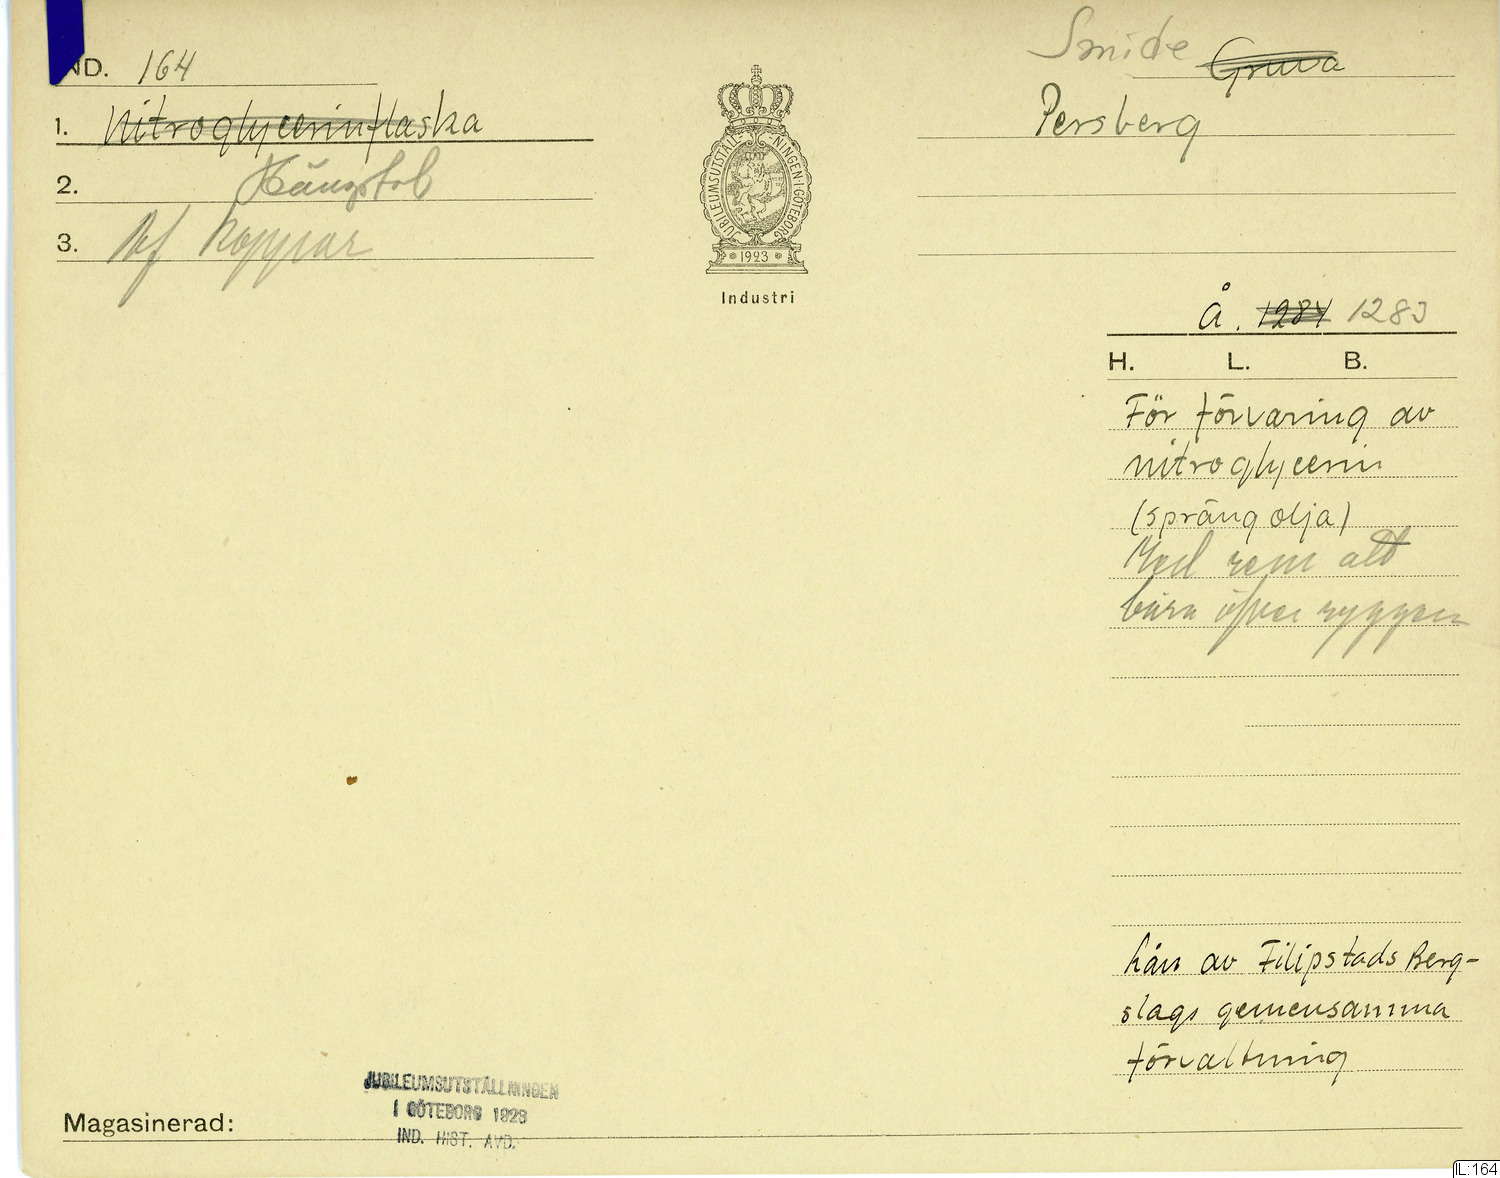 ND. 164
1. Nitroglycerinflaska
2.
3. Af Koppar
JUBILEUMSUTSTÄLL-NINGEN·I·GÖTEBORG
1923
Industri
Smide Gruva
Persberg
Å. 1284 1283
H. L. B.
För förvaring av
nitroglycerin
(sprängolja)
Med rem att
bära öfver ryggen
Lån av Filipstads Berg-
slags gemensamma
förvaltning
JUBILEUMSUTSTÄLLNINGEN
I GÖTEBORG 1923
IND. HIST. AVD.
Magasinerad:
IL:164